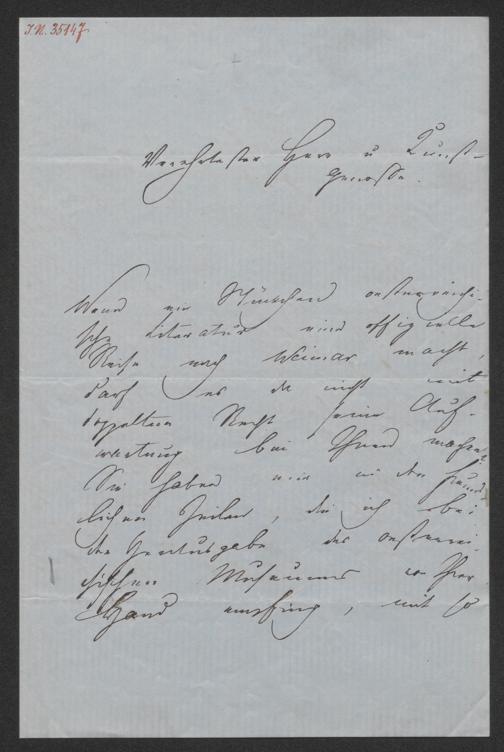 I.N. 35147
Verehrtester Herr u Kunst-
genosse.
Wenn ein Stückchen oesterreichi-
sche Literatur eine offizielle
Reise nach Weimar macht,
darf es da nicht mit
doppeltem Recht seine Auf-
wartung bei Ihnen machen?
Sie haben mir in den freund-
lichen Zeilen, die ich bei
der des oesterrei-
chischen Museums von Ihrer
Hand empfing, mit so